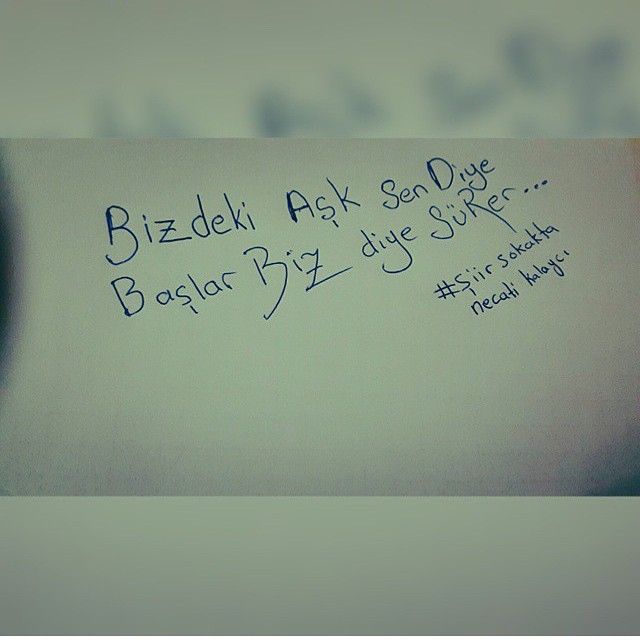 Bizdeki Aşk Sen Diye
Başlar Biz diye SüRer...
#şiirsokakta
necati kalaycı